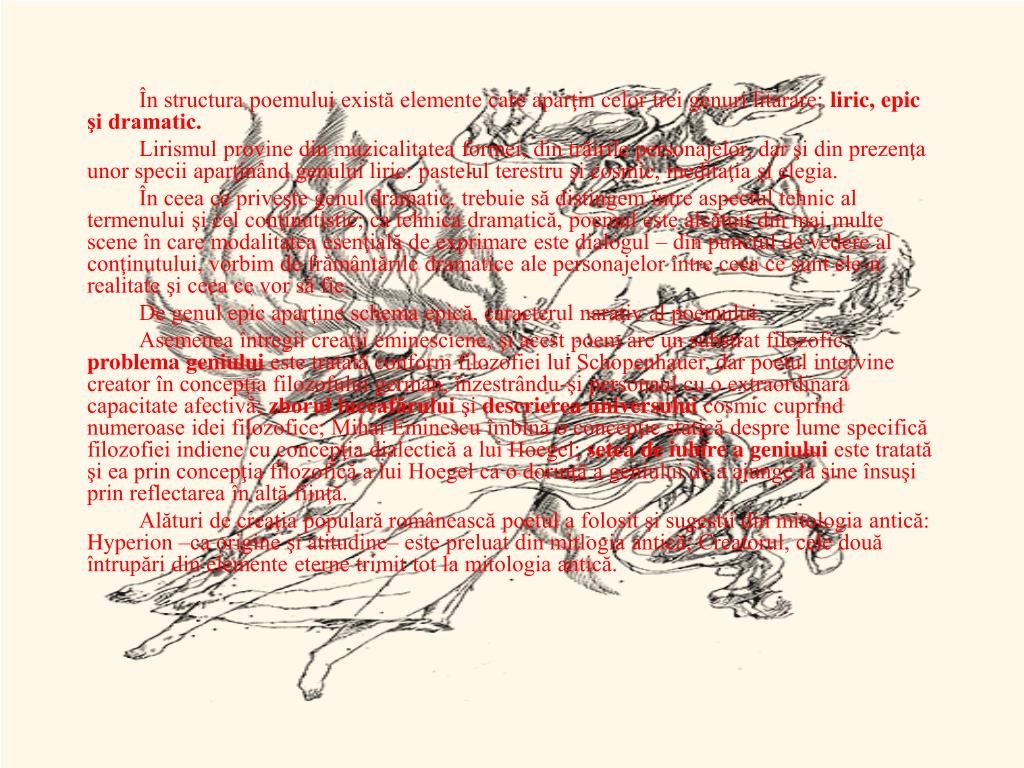 În structura poemului există elemente care aparţin celor trei genuri litarare: liric, epic
şi dramatic.
Lirismul provine din muzicalitatea formei, din trăirile personajelor, dar şi din prezenţa
unor specii aparţinând genului liric: pastelul terestru şi cosmic, meditaţia şi elegia.
În ceea ce priveşte genul dramatic, trebuie să distingem între aspectul tehnic al
termenului şi cel conţinutistic; ca tehnică dramatică, poemul este alcătuit din mai multe
scene în care modalitatea esenţială de exprimare este dialogul – din punctul de vedere al
conţinutului, vorbim de frământările dramatice ale personajelor între ceea ce sunt ele n
realitate şi ceea ce vor să fie.
De genul epic aparţine schema epică, caracterul narativ al poemului.
Asemenea întregii creaţii eminesciene, şi acest poem are un substrat filozofic:
problema geniului este tratată conform filozofiei lui Schopenhauer, dar poetul intervine
creator în concepţia filozofului german, înzestrându-şi personajul cu o extraordinară
capacitate afectivă; zborul luceafărului şi descrierea universului cosmic cuprind
numeroase idei filozofice; Mihai Eminescu îmbină o concepţie statică despre lume specifică
filozofiei indiene cu concepţia dialectică a lui Hoegel; setea de iubire a geniului este tratată
şi ea prin concepţia filozofică a lui Hoegel ca o dorinţă a geniului de a ajunge la sine însuşi
prin reflectarea în altă fiinţă.
Alături de creaţia populară românească poetul a folosit şi sugestii din mitologia antică:
Hyperion –ca origine şi atitudine– este preluat din mitlogia antică; Creatorul, cele două
întrupări din elemente eterne trimit tot la mitologia antică.